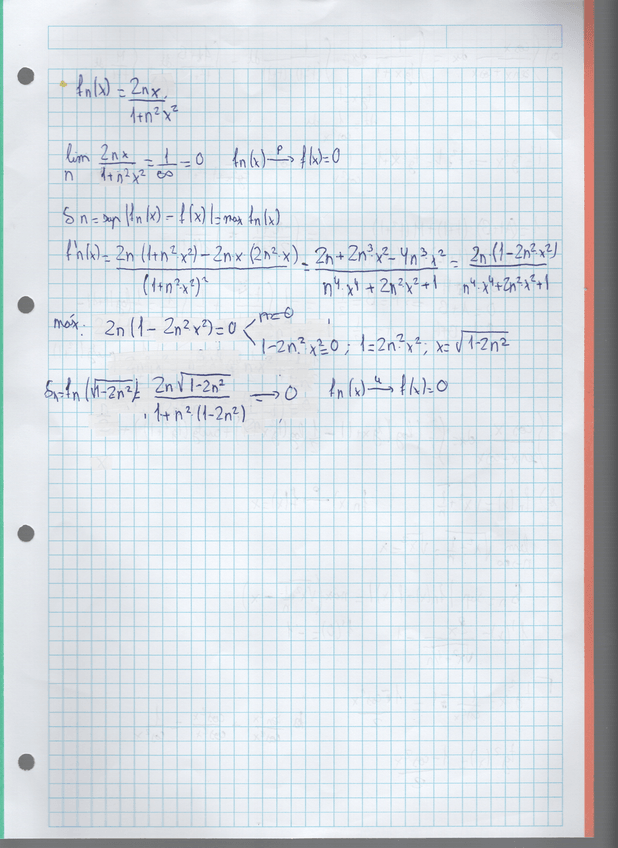 fn(x) = 2nx / 1+n²x²
lim n 2nx / 1+n²x² = 1/∞ = 0 fn(x) →p f(x)=0
δn = sup |fn(x) - f(x)| = max fn(x)
f'n(x) = 2n (1+n²·x²) - 2n·x·(2n²·x) / (1+n²·x²)² = 2n + 2n³·x² - 4n³x² / n⁴·x⁴ + 2n²x²+1 = 2n·(1-2n²·x²) / n⁴·x⁴+2n²x²+1
máx: 2n(1-2n²x²)=0 < n=0
1-2n²·x²=0 ; 1=2n²·x² ; x=√1-2n²
δn = fn(√1-2n²) = 2n√1-2n² / 1+n²·(1-2n²) → 0 fn(x) →u f(x)=0